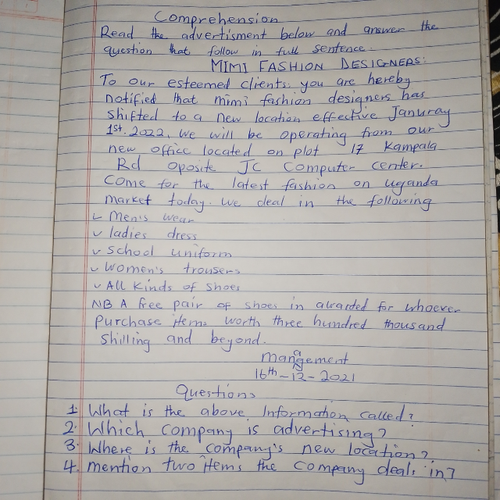 Comprehension
Read the advertisment below and answer the
question that follow in full sentence
MIMI FASHION DESIGNERS.
To our esteemed clients. you are hereby
notified that mimi fashion designers has
shifted to a new location effective Januray
1st. 2022. we will be operating from our
new office located on plot 17 Kampala
Rd oposite JC Computer center.
Come for the latest fashion on Uganda
market today. we deal in the following
✓ Men's wear
✓ ladies dress
✓ School uniform
✓ Women's trousers
✓ All kinds of shoes
NB A free pair of shoes in awarded for whoever
purchase items worth three hundred thousand
shilling and beyond.
management
16th-12-2021
Questions
1. What is the above Information called?
2. Which company is advertising?
3. Where is the company's new location?
4. mention two items the company deals in?